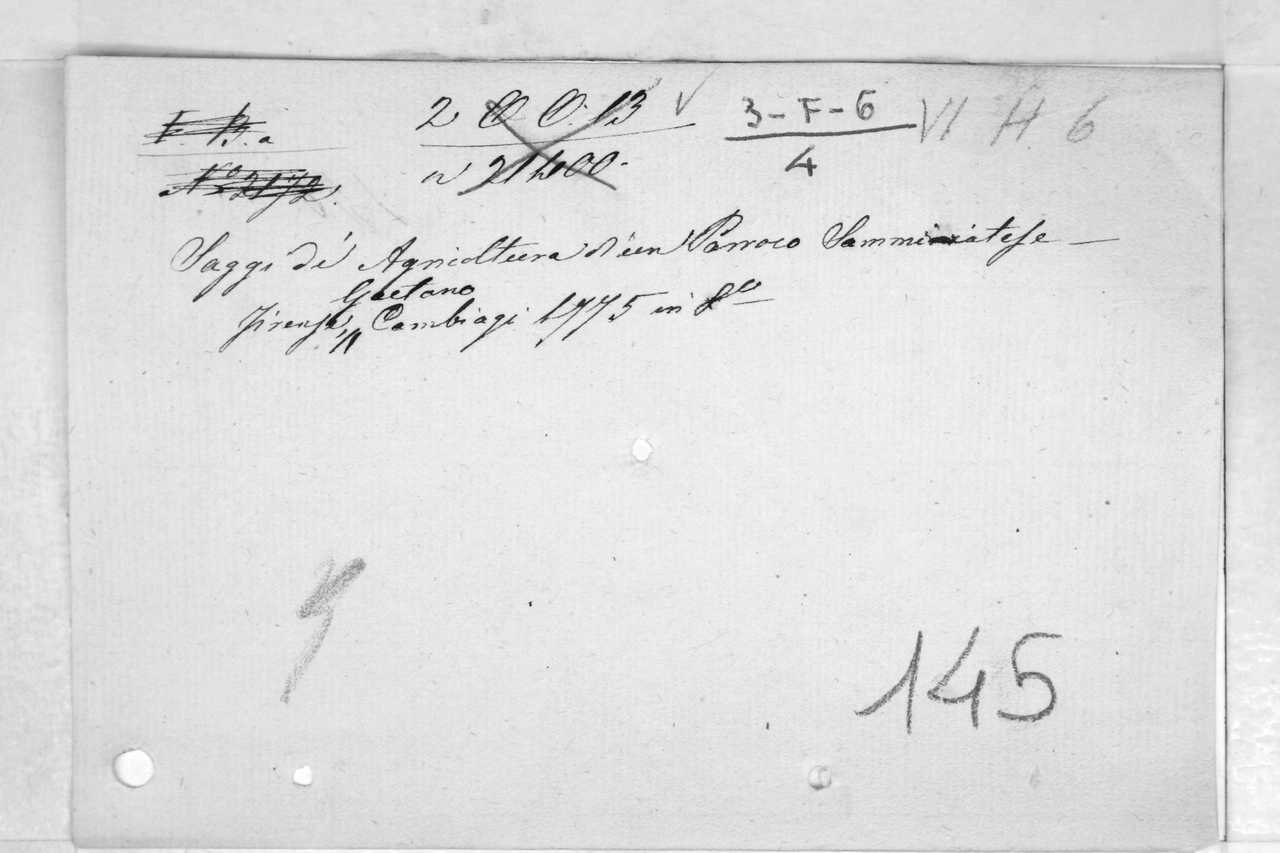 F. B.a 2 O O. 13 3-F-6 VI H. 6
No 2172. n 21400. 4
Saggi di Agricoltura d'un Parroco Samminiatese —
Gaetano
Firenze, Cambiagi 1775 in 8º
145